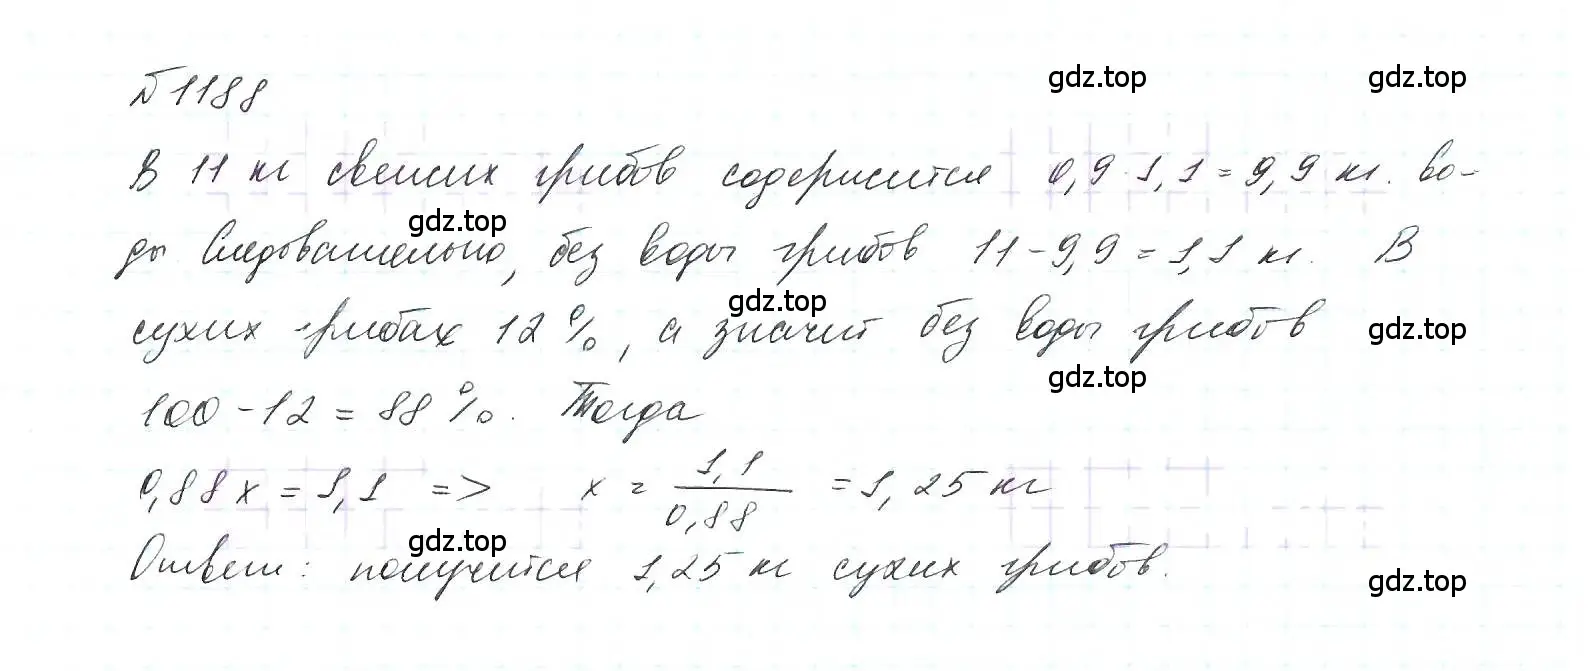 №1188
gdz.top
gdz.top
В 11 кг свежих грибов содержится 0,9·1,1=9,9 кг. во-
gdz.top
ды Следовательно, без воды грибов 11-9,9=1,1 кг. В
gdz.top
сухих грибах 12%, а значит без воды грибов
gdz.top
gdz.top
100-12=88%. Тогда
0,88x=1,1 => x= 1,1/0,88 =1,25 кг
gdz.top
Ответ: получится 1,25 кг сухих грибов.
gdz.top